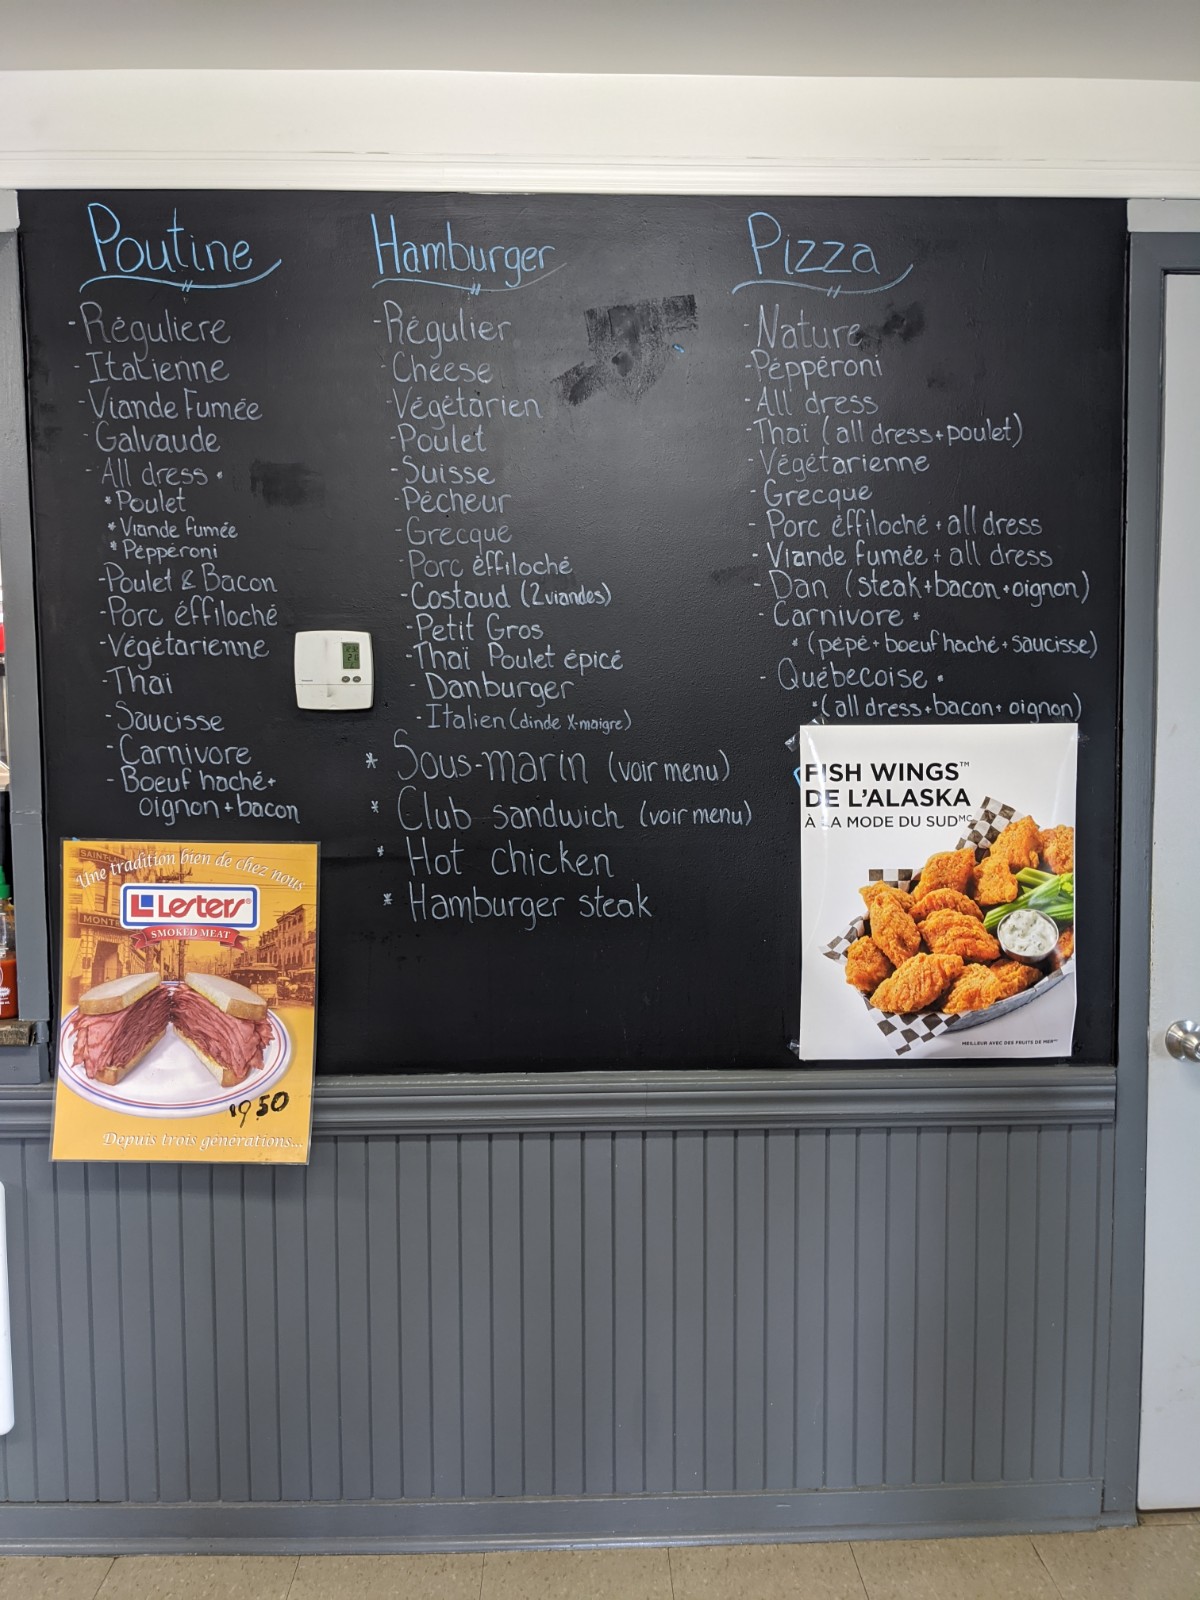 Poutine
- Régulière
- Italienne
- Viande Fumée
- Galvaude
- All dress •
* Poulet
* Viande fumée
* Pépperoni
- Poulet & Bacon
- Porc éffiloché
- Végétarienne
- Thaï
- Saucisse
- Carnivore
- Boeuf haché +
oignon + bacon
Hamburger
- Régulier
- Cheese
- Végétarien
- Poulet
- Suisse
- Pêcheur
- Grecque
- Porc éffiloché
- Costaud (2 viandes)
- Petit Gros
- Thaï Poulet épicé
- Danburger
- Italien (dinde X-maigre)
* Sous-marin (voir menu)
* Club sandwich (voir menu)
* Hot chicken
* Hamburger steak
Pizza
- Nature
- Pépperoni
- All dress
- Thaï (all dress + poulet)
- Végétarienne
- Grecque
- Porc éffiloché + all dress
- Viande fumée + all dress
- Dan (steak + bacon + oignon)
- Carnivore •
* (pépé + boeuf haché + saucisse)
- Québecoise •
* (all dress + bacon + oignon)
Une tradition bien de chez nous
Lesters®
SMOKED MEAT
9.50
Depuis trois générations...
FISH WINGS™
DE L'ALASKA
À LA MODE DU SUD MC
MEILLEUR AVEC DES FRUITS DE MER